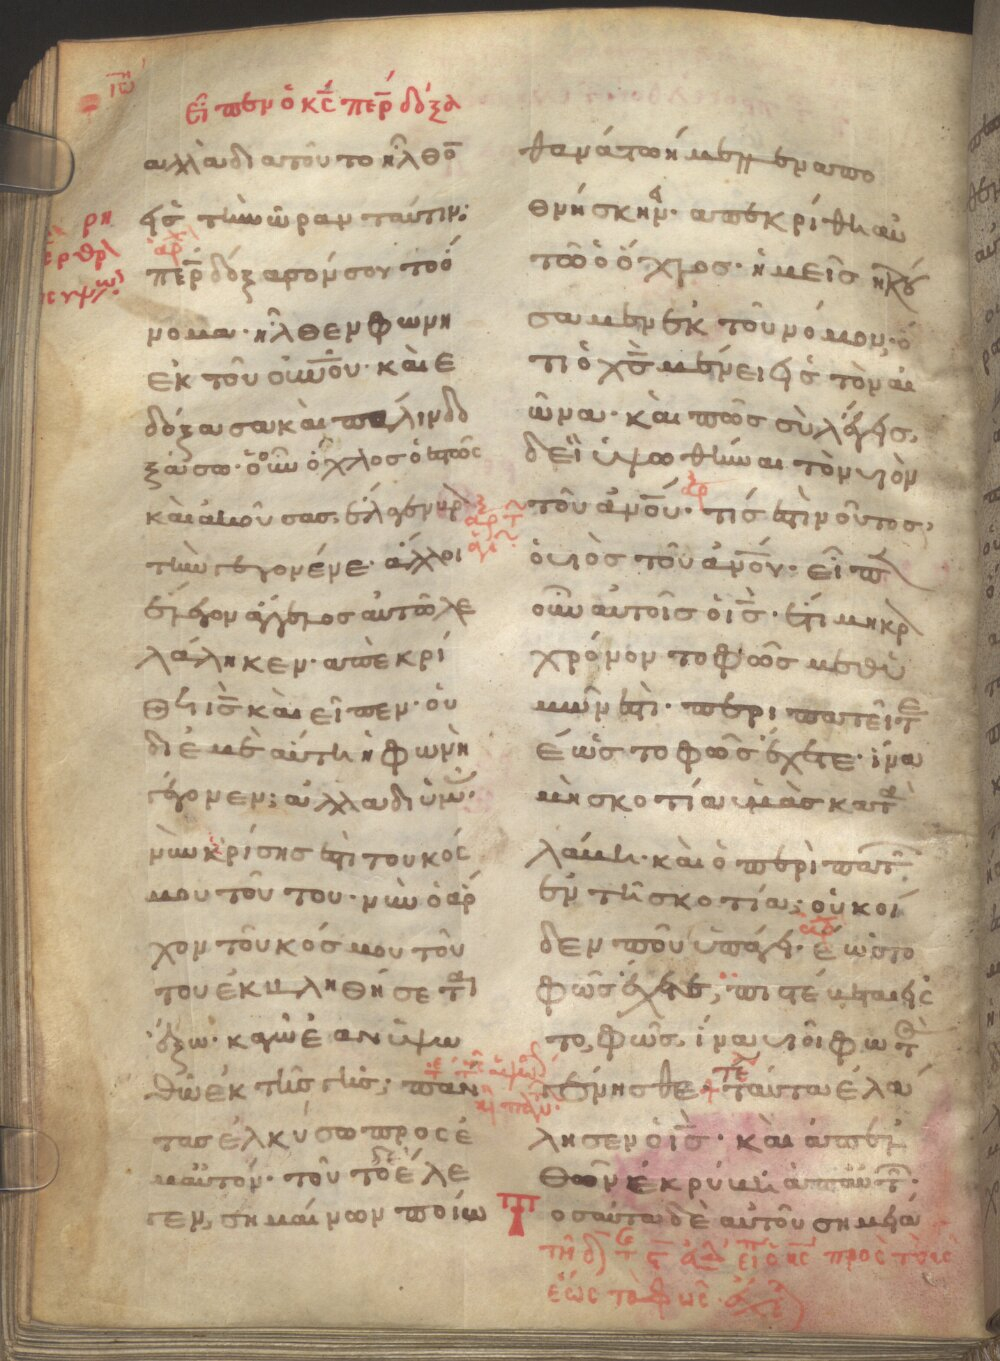 εἶπεν ὁ κς περ δόξα
ἀλλὰ διατοῦτο ἦλθο
εἰς τὴν ὥραν ταύτην·
περ δόξασόν σου τὸ ὄ
νομα· ἦλθεν φωνὴ
ἐκ τοῦ οὐνου· καὶ ἐ
δόξασα καὶ πάλιν δο
ξάσω· ὁ οὖν ὄχλος ὁ ἑστὼς
καὶ ἀκούσας, ἔλεγεν βρ
τὴν γεγονέναι· ἄλλοι
ἔλεγον ἄγγελος αὐτῶ λε
λάληκεν· ἀπεκρί
θη ις καὶ εἶπεν· οὐ
δι ἐμὲ αὕτη ἡ φωνὴ
γέγονεν· ἀλλὰ δι ὑμ·
νῦν κρίσης ἐστὶ τοῦ κόσ
μου τούτου· νῦν ὁ ἄρ
χον τοῦ κόσμου τού
του ἐκβληθήσετ
ἔξω· κἀγὼ ἐὰν ὑψω
θῶ ἐκ τῆς γῆς· πάν
τας ἑλκύσω προς ἐ
μαυτόν· τοῦτο δὲ ἔλε
γεν, σημαίνων ποίω
θανάτω ἤμελλεν ἀπο
θνήσκην· ἀπεκρίθη αὐ
τῶ ὁ ὄχλος· ἡμεῖς ἠκού
σαμεν ἐκ τοῦ νόμου, ὅ
τι ὁ χς μένει εἰς τὸν αἰ
ῶνα· καὶ πῶς σὺ λέγεις,
δεῖ ὑψωθῆναι τὸν υἱὸν
τοῦ ἀνου· τίς ἐστιν οὗτος,
ὁ υἱὸς τοῦ ἀνου· εἶπ
οὖν αὐτοῖς ὁ ις· ἔτι μηκρ
χρόνον το φῶς μεθ ὑ
μῶν ἐστι· περιπατεῖτε
ἕως το φῶς ἔχετε· ἵνα
μὴ σκοτία ὑμᾶς κατ
λάβη· καὶ ὁ περιπατ
ἐν τῆ σκοτία· οὐκ οἶ
δεν ποῦ ὑπάγει· ἕως το
φῶς ἔχετε, πιστεύεται εἰς
το, φῶς, ἵνα υἱοὶ φωτ
γένησθε· ταῦτα ἐλά
λησεν ὁ ις· καὶ ἀπελ
θὼν ἐκρύβη ἀπ αὐτ·
Τοσαῦτα δὲ αὐτοῦ σημεῖα
ἕως τὸ φῶς ἔχετ